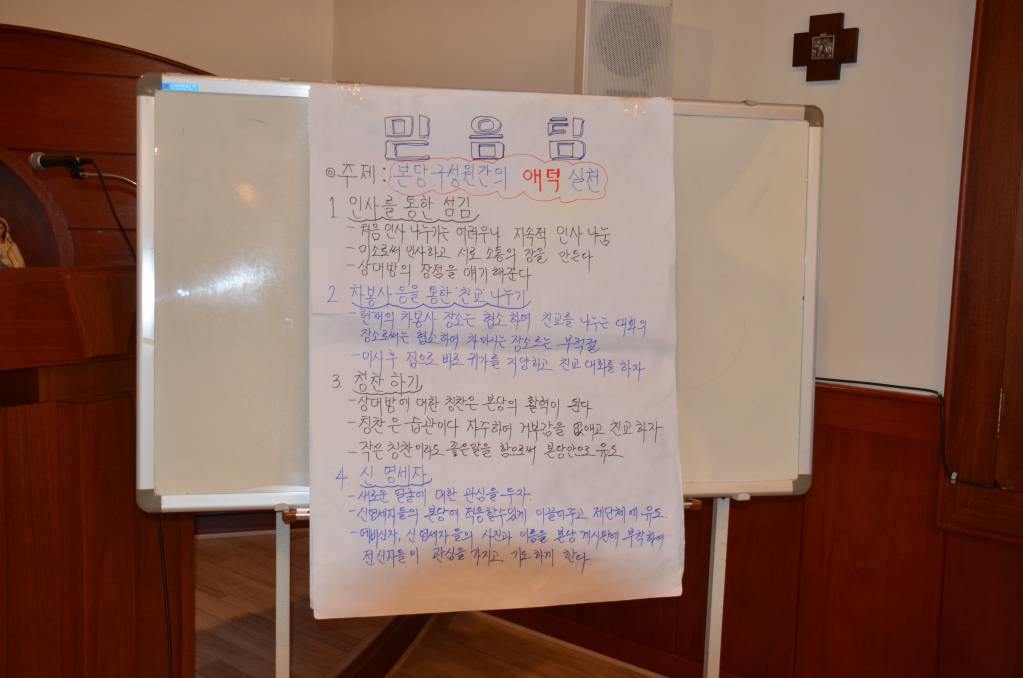 믿음팀
◎주제: 본당구성원간의 애덕 실천
1 인사를 통한 섬김
- 처음 인사 나누기는 어려우나 지속적 인사 나눔
- 미소로써 인사하고 서로 소통의 장을 만든다
- 상대방의 장점을 얘기해준다
2 차봉사 등을 통한 '친교' 나누기
- 현재의 차봉사 장소는 협소하여 친교를 나누는 대화의
장소로써는 협소하여 차 마시는 장소로는 부적절
- 미사후 집으로 바로 귀가를 지양하고 친교 대화를 하자
3 칭찬하기
- 상대방에 대한 칭찬은 본당의 활력이 된다
- 칭찬은 습관이다 자주하여 거부감을 없애고 친교하자
- 작은 칭찬이라도 좋은말을 함으로써 본당안으로 유도
4 신 영세자
- 새로운 얼굴에 대한 관심을 두자
- 신영세자들의 본당에 적응할수있게 이끌어주고 제단체에 유도
- 예비신자, 신 영세자 들의 사진과 이름을 본당 게시판에 부착하여
전신자들이 관심을 가지고 기도하게 한다